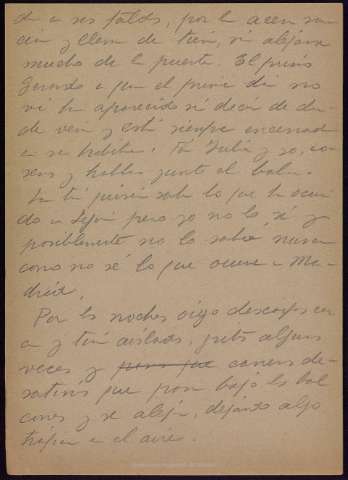 de a sus faldas, por la acera
y llena de tíos, ni alejarse
mucho de la puerta. El primo
Gerardo a quien el primer día no
vi ha aparecido ni decir de don-
de ven y está siempre encerrado
en su habitac. Tía Julia y yo, co-
semos y hablamos junto al balcón.
La tía piensa sobre lo que ha ocurri-
do a Lejón pero yo no lo sé y
posiblemente no lo sabré nunca
como no sé lo que ocurre en Ma-
drid.
Por las noches oigo descargas cer-
ca y tiros aislados, gritos algunas
veces y para que canciones de-
satinos que pasan bajo los bal
cones y se alejan, dejando algo
en el aire.